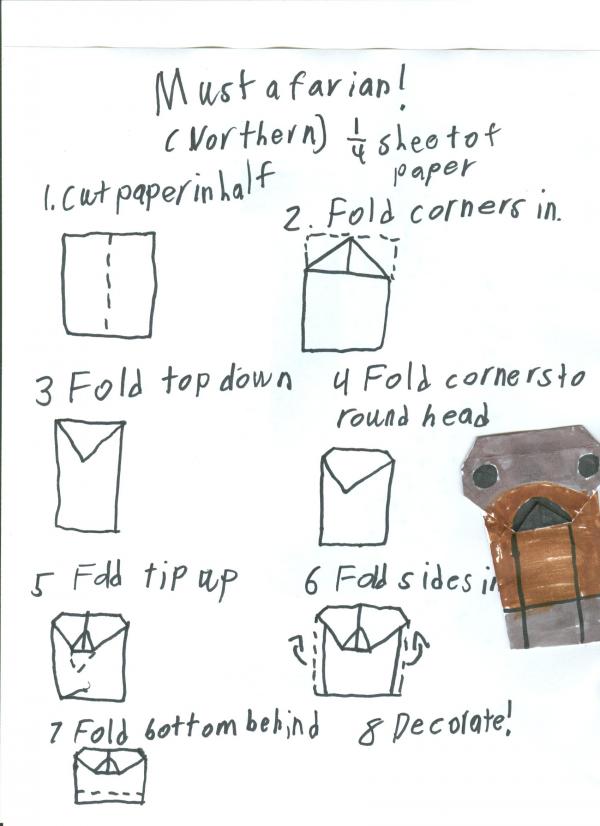 Mustafarian!
(Northern) 1/4 sheet of
paper
1. Cut paper in half
2. Fold corners in.
3 Fold top down
4 Fold corners to
round head
5 Fold tip up
6 Fold sides in
7 Fold bottom behind
8 Decorate!